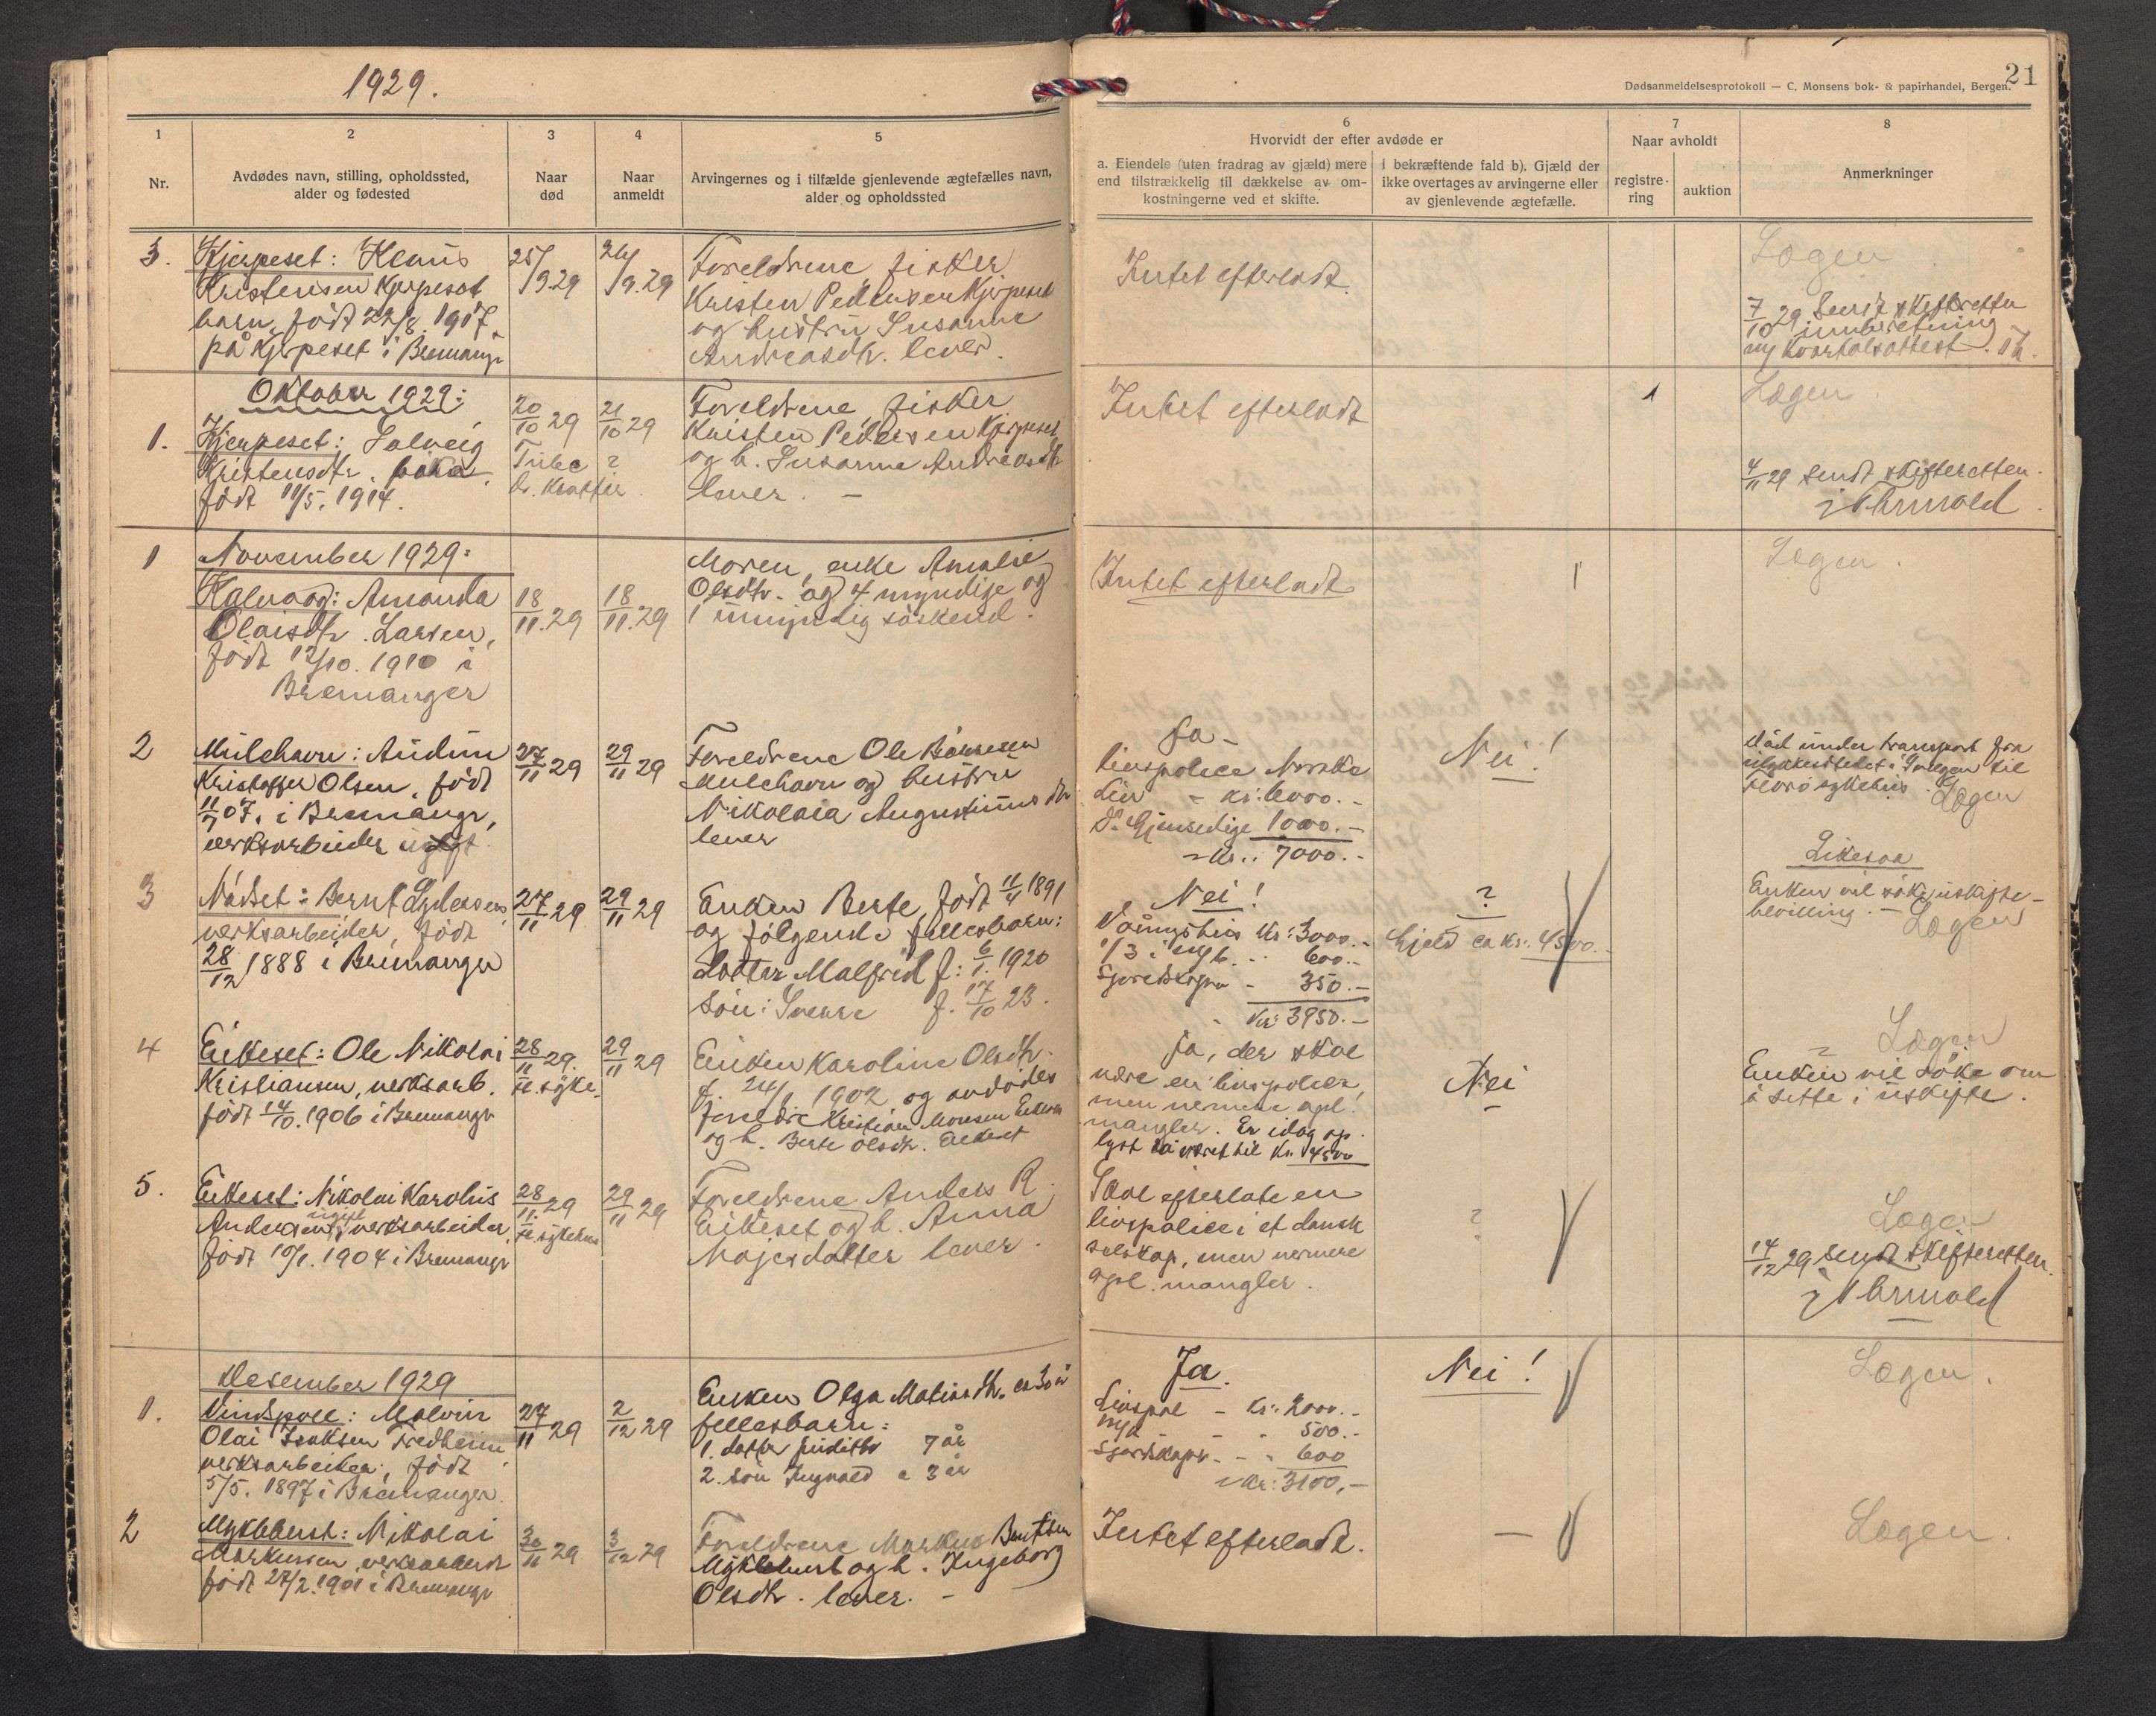 1929.
21
Dødsanmeldelsesprotokoll — C. Monsens bok- & papirhandel, Bergen.
1
Nr.
2
Avdødes navn, stilling, opholdssted,
alder og fødested
3
Naar
død
4
Naar
anmeldt
5
Arvingernes og i tilfælde gjenlevende ægtefælles navn,
alder og opholdssted
6
Hvorvidt der efter avdøde er
a. Eiendele (uten fradrag av gjæld) mere
end tilstrækkelig til dækkelse av om-
kostningerne ved et skifte.
i bekræftende fald b). Gjæld der
ikke overtages av arvingerne eller
av gjenlevende ægtefælle.
7
Naar avholdt
registre-
ring
auktion
8
Anmerkninger
3.
Kjerpeset: Klaus
Kristensen Kjerpeset
barn, født 22/8. 1917.
på Kjerpeset i Bremangr
25/9.29
26/9.29
Foreldrene fisker
Kristen Pedersen Kjerpeset
og hustru Susanne
Andreasdtr. lever.
Intet efterladt.
Lægen
7/10 29 Sendt skifteretten
innberetning
m/ Kvartalsattest.
Oktober 1929:
1.
Kjerpeset: Solveig
Kristensdtr. barn,
født 11/5. 1914.
20/10 29
21/10 29
Tube ?
Foreldrene, fisker
Kristen Pedersen Kjerpeset
og h. Susanne Andreasdtr
lever. —
Intet efterladt
1
Lægen
4/11 29 sendt skifteretten.
November 1929:
1
Kalvaag: Amanda
Olaisdtr. Larsen,
født 12/10. 1910 i
Bremanger
18/11.29
18/11.29
Moren, enke Amalie
Olsdtr. og 4 myndige og
1 umyndig søskend.
Intet efterladt
Lægen.
2
Mulehavn: Audun
Kristoffer Olsen, født
11/7 07. i Bremangr,
verksarbeider ugift.
27/11 29
29/11 29
Foreldrene Ole
Mulehavn og hustru
Nikolaia Augustinusdtr
lever
Ja —
livspolice Norske
Liv - kr: 6000.-
Do Gjensidige 1000.-
- Kr.: 7000.-
Nei!
Død under transport fra
ulykkesstedet i Svelgen til
Florø sykehus. Lægen
3
Nødset: Bernt
verksarbeider, født
28/12 1888 i Bremanger
27/11 29
29/11 29
Enken Berte, født 11/4 1891
og følgende fellesbarn:
Datter Malfrid f: 6/1. 1920
Søn: Sverre f. 17/10 23.
Nei!
Våningshus Kr: 3000.-
1/3 i 600.-
350.-
- Kr: 3950.-
?
Gjeld ca kr: 4500.-
Likesaa
Enken vil søke uskifte-
bevilling. - Lægen
4
Eikeset: Ole Nikolai
Kristiansen, verksarb.
født 14/10. 1906 i Bremangr
28/11 29.
Fl. syke.
29/11 29
Enken Karoline Olsdtr.
f. 24/1. 1902 og avdødes
foreldre Kristian Monsen Eikeset
og h. Berte Olsdtr. Eikeset
Ja, der skal
være en livspolice,
men nermere opl.
mangler. Er idag op-
lyst å være til Kr. 4500
Nei
Lægen
Enken vil søke om
å sitte i uskifte.
5.
Eikeset: Nikolai Karolus
Andersen, ugift verksarbeider,
født 10/1. 1904 i Bremangr
28/11.29
Fl. sykehus
29/11 29
Foreldrene Anders R.
Eikeset og h. Anna
Mojesdatter lever.
Skal efterlate en
livspolice i et dansk
selskap, men nermere
opl. mangler.
?
Lægen
14/12 29 sendt skifteretten.
Desember 1929
1.
Vindspoll: Malvin
Olai Isaksen Fredheim
verksarbeider, født
5/5. 1897 i Bremanger.
27/11 29
2/12 29
Enken Olga Matiasdtr. ca 30 år
fellesbarn:
1. datter Judith 7 år
2. søn Ingvald - 3 år
Ja.
Livspol - Kr: 2000.-
500.-
600
- Kr: 3100,-
Nei!
Lægen.
2
Myklebust: Nikolai
Markussen, verksarbeider
født 27/2. 1901 i Bremangr
30/11 29
3/12 29
Foreldrene Markus Berntsen
Myklebust og h. Ingeborg
Olsdtr. lever. -
Intet efterladt.
—
Lægen.